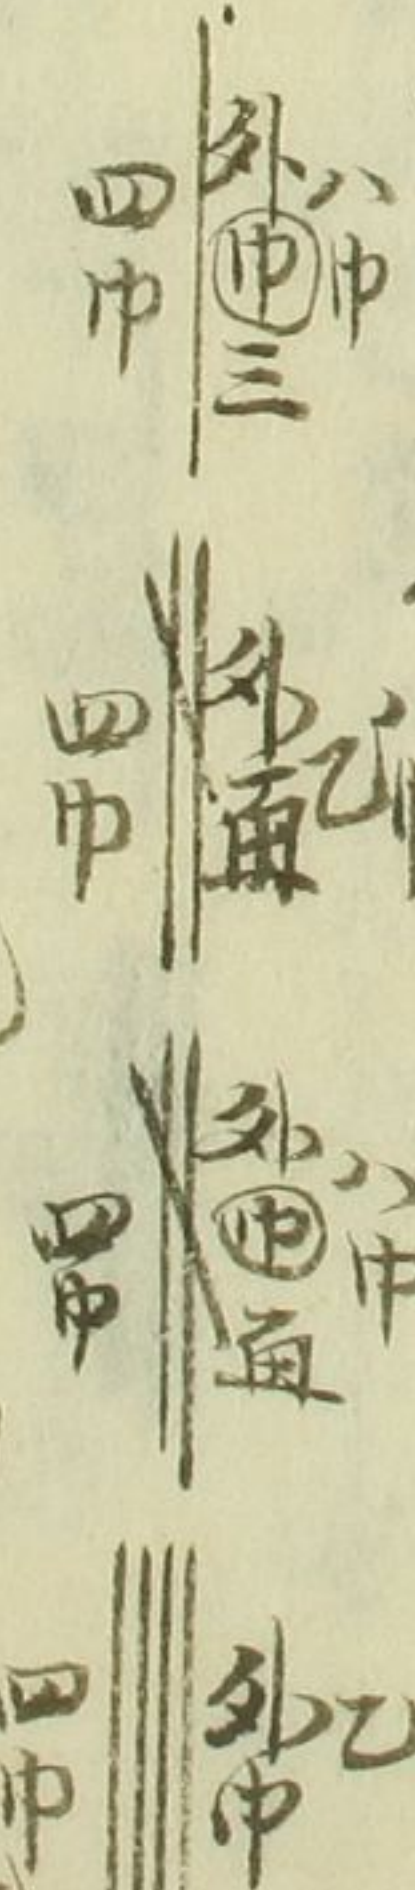 八巾
外巾三
四巾
乙
外
四巾
八巾
外巾
四巾
乙
外巾
四巾